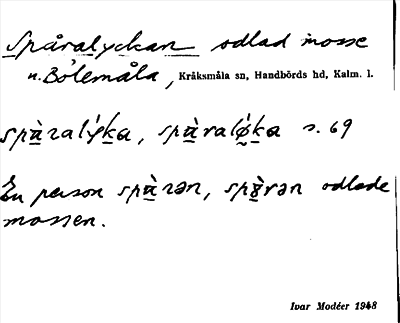 Spåralyckan odlad mosse
n. Bölemåla, Kråksmåla sn, Handbörds hd, Kalm. l.
spàralýka, spàralǿka s. 69
En person spàrən, spɤ̀rən odlade
mossen.
Ivar Modéer 1948